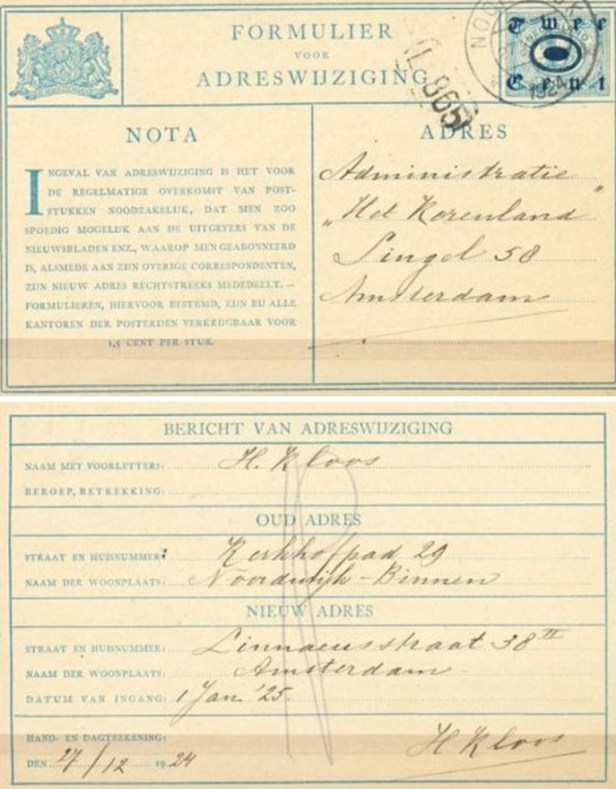 FORMULIER
VOOR
ADRESWIJZIGING
Twee
Cent
NOTA
INGEVAL VAN ADRESWIJZIGING IS HET VOOR
DE REGELMATIGE OVERKOMST VAN POST-
STUKKEN NOODZAKELIJK, DAT MEN ZOO
SPOEDIG MOGELIJK AAN DE UITGEVERS VAN DE
NIEUWSBLADEN ENZ., WAAROP MEN GEABONNEERD
IS, ALSMEDE AAN ZIJN OVERIGE CORRESPONDENTEN,
ZIJN NIEUW ADRES RECHTSTREEKS MEDEDEELT. —
FORMULIEREN, HIERVOOR BESTEMD, ZIJN BIJ ALLE
KANTOREN DER POSTERIJEN VERKRIJGBAAR VOOR
1,5 CENT PER STUK.
ADRES
Administratie
„Het Korenland"
Singel 58
Amsterdam
BERICHT VAN ADRESWIJZIGING
NAAM MET VOORLETTERS: H. Kloos
BEROEP, BETREKKING:
OUD ADRES
STRAAT EN HUISNUMMER: Kerkhofpad 29
NAAM DER WOONPLAATS: Noordwijk-Binnen
NIEUW ADRES
STRAAT EN HUISNUMMER: Linnaeusstraat 38 II
NAAM DER WOONPLAATS: Amsterdam
DATUM VAN INGANG: 1 Jan. '25.
HAND- EN DAGTEEKENING:
H Kloos
DEN 27/12 1924